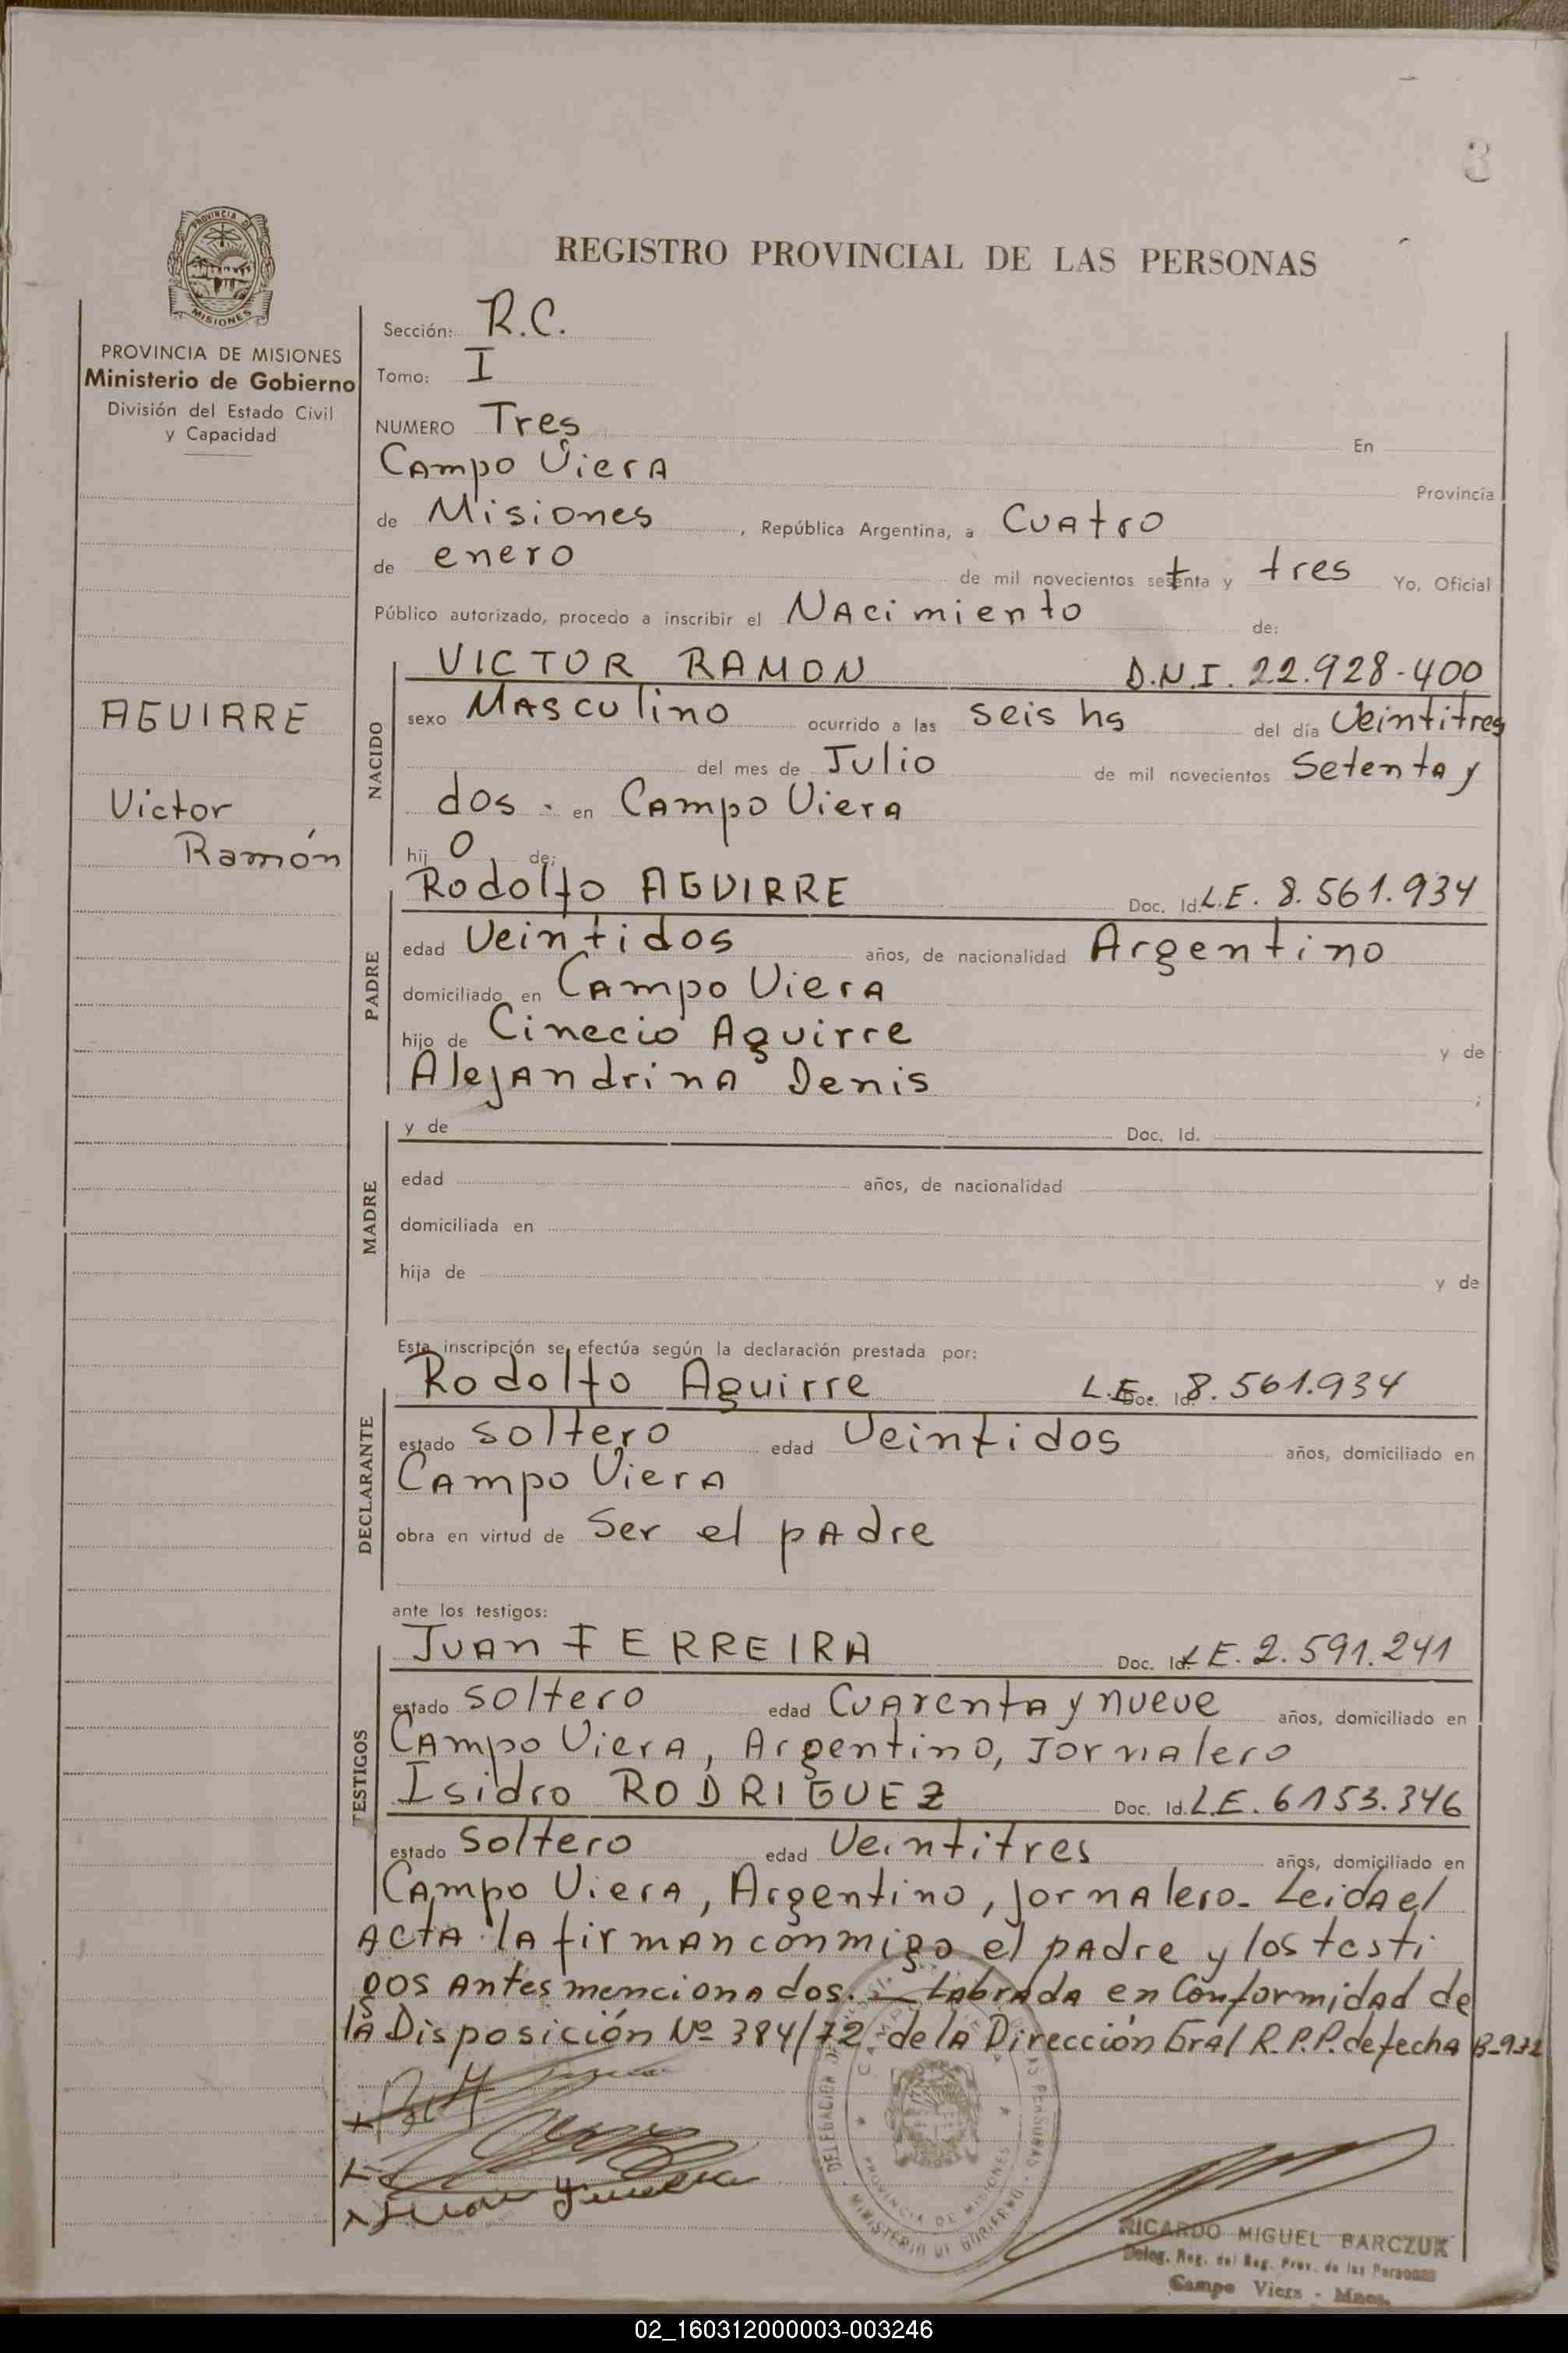 3
PROVINCIA DE
MISIONES
PROVINCIA DE MISIONES
Ministerio de Gobierno
División del Estado Civil
y Capacidad
AGUIRRE
Victor
Ramón
REGISTRO PROVINCIAL DE LAS PERSONAS
Sección: R.C.
Tomo: I
NUMERO Tres En
Campo Viera Provincia
de Misiones , República Argentina, a cuatro
de enero de mil novecientos setenta y tres Yo, Oficial
Público autorizado, procedo a inscribir el Nacimiento de:
NACIDO
VICTOR RAMON D.N.I. 22.928-400
sexo Masculino ocurrido a las seis hs del día Veintitres
del mes de Julio de mil novecientos Setenta y
dos - en Campo Viera
hij o de:
PADRE
Rodolfo AGUIRRE Doc. Id. L.E. 8.561.934
edad Veintidos años, de nacionalidad Argentino
domiciliado en Campo Viera
hijo de Cinecio Aguirre y de
Alejandrina Denis ;
MADRE
y de Doc. Id.
edad años, de nacionalidad
domiciliada en
hija de y de
Esta inscripción se efectúa según la declaración prestada por:
DECLARANTE
Rodolfo Aguirre Doc. Id. L.E. 8.561.934
estado soltero edad Veintidos años, domiciliado en
Campo Viera
obra en virtud de Ser el padre
ante los testigos:
TESTIGOS
Juan FERREIRA Doc. Id. L.E. 2.591.241
estado soltero edad Cuarenta y nueve años, domiciliado en
Campo Viera, Argentino, Jornalero
Isidro RODRIGUEZ Doc. Id. L.E. 6153.346
estado soltero edad Veintitres años, domiciliado en
Campo Viera, Argentino, jornalero- Leida el
acta la firman conmigo el padre y los testi
gos antes mencionados. — Labrada en Conformidad de
la Disposición Nº 384/72 de la Dirección Gral R.P.P. de fecha
PROVINCIA DE MISIONES
MINISTERIO DE GOBIERNO
RICARDO MIGUEL BARCZUK
Deleg. Reg. del Reg. Prov. de las Personas
Campo Viera - Mnes.
02_160312000003-003246